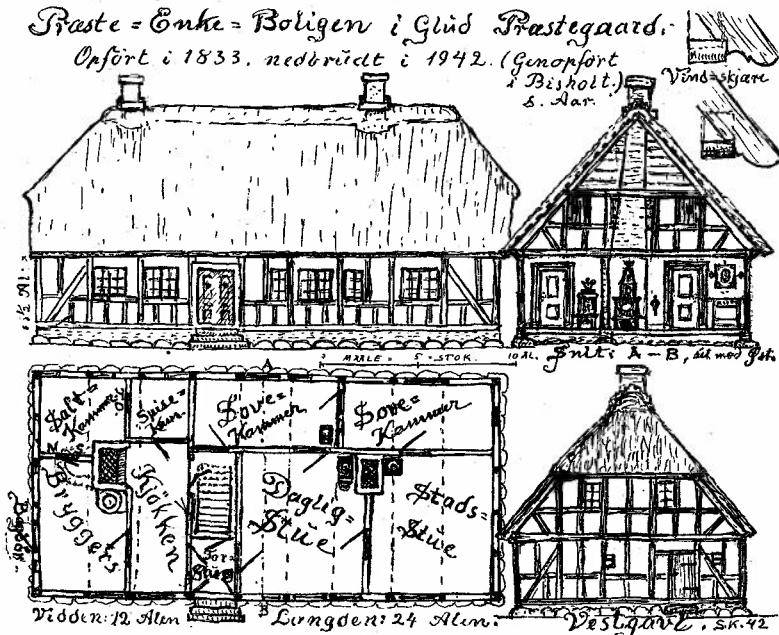 Præste=Enke=Boligen i Glud Præstegaard.
Opført i 1833, nedbrudt i 1942. (Genopført
i Bisholt.)
s. Aar.
Vind=skjære
MAALE = 5 = STOK. 10 AL.
Snit: A – B, set mod Øst.
A
Salt=
Kammer
Spise=
Kam
Sove=
Kammer
Sove=
Kammer
Bryggers
Kjøkken
Daglig=
Stue
Stads=
Stue
For=
Stue
B
Vidden: 12 Alen
Længden: 24 Alen.
Vestgavl. SK. 42